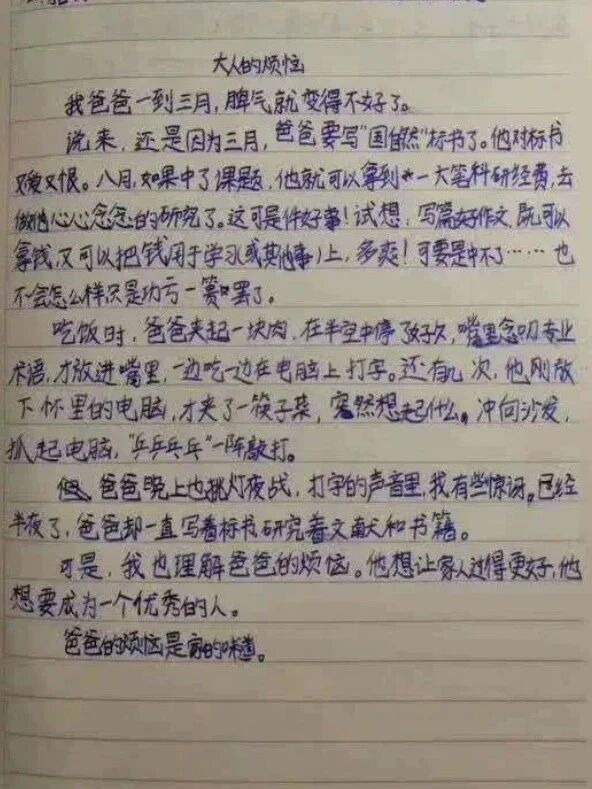 大人的烦恼
我爸爸一到三月，脾气就变得不好了。
说来，还是因为三月，爸爸要写"国自然"标书了。他对标书
又爱又恨。八月，如果中了课题，他就可以拿到一大笔科研经费，去
做他心心念念的研究了。这可是件好事！试想，写篇好作文，既可以
拿钱，又可以把钱用于学习(或其他事)上，多爽！可要是中不了……也
不会怎么样，只是功亏一篑罢了。
吃饭时，爸爸夹起一块肉，在半空中停了好久，嘴里念叨专业
术语，才放进嘴里，一边吃一边在电脑上打字。还有几次，他刚放
下怀里的电脑，才夹了一筷子菜，突然想起什么，冲向沙发，
抓起电脑，"乒乒乓乓"一阵敲打。
爸爸晚上也挑灯夜战，打字的声音里，我有些惊讶。已经
半夜了，爸爸却一直写着标书，研究着文献和书籍。
可是，我也理解爸爸的烦恼。他想让家人过得更好，他
想要成为一个优秀的人。
爸爸的烦恼是家的味道。